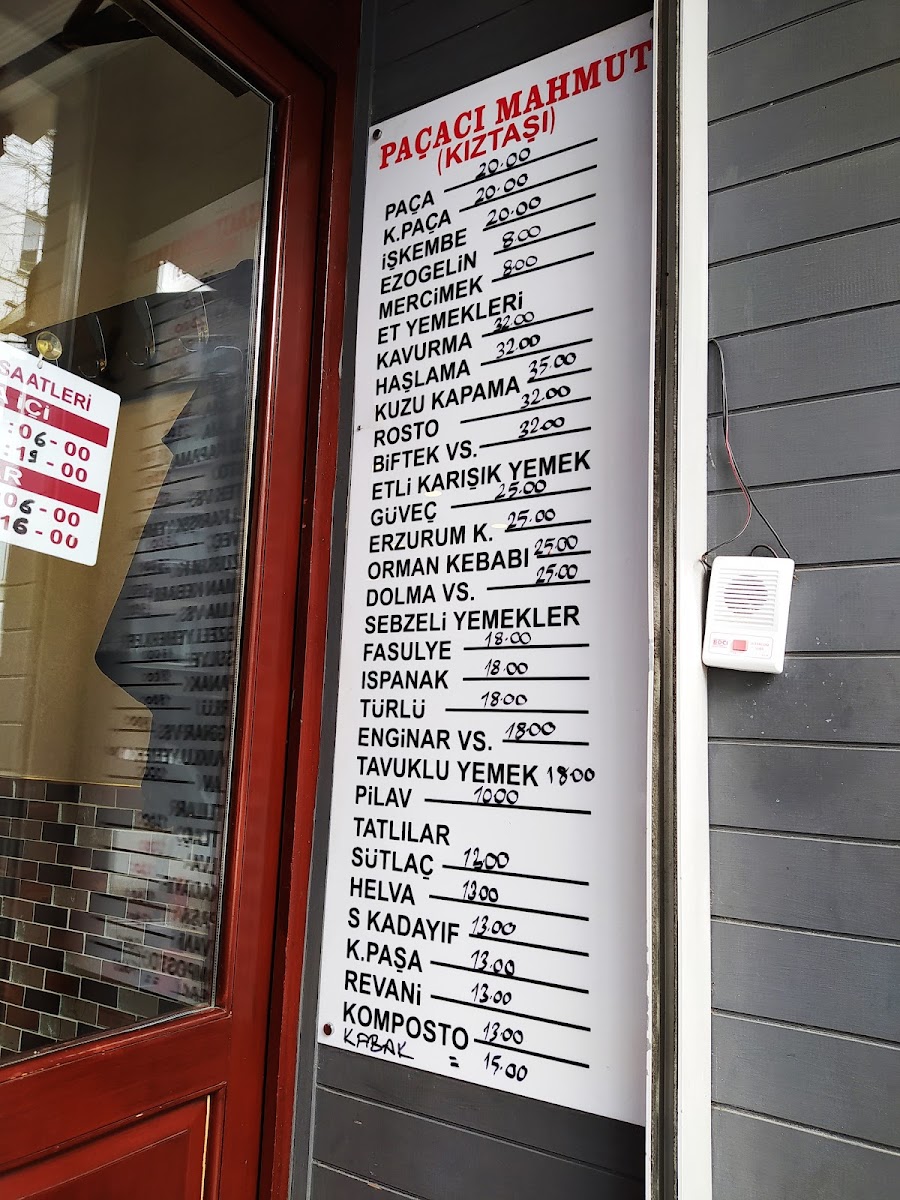 PAÇACI MAHMUT
(KIZTAŞI)
PAÇA 20.00
K.PAÇA 20.00
İŞKEMBE 20.00
EZOGELİN 8.00
MERCİMEK 8.00
ET YEMEKLERİ
KAVURMA 32.00
HAŞLAMA 32.00
KUZU KAPAMA 35.00
ROSTO 32.00
BİFTEK VS. 32.00
ETLİ KARIŞIK YEMEK
GÜVEÇ 25.00
ERZURUM K. 25.00
ORMAN KEBABI 25.00
DOLMA VS. 25.00
SEBZELİ YEMEKLER
FASULYE 18.00
ISPANAK 18.00
TÜRLÜ 18.00
ENGİNAR VS. 18.00
TAVUKLU YEMEK 18.00
PİLAV 10.00
TATLILAR
SÜTLAÇ 12.00
HELVA 13.00
S KADAYIF 13.00
K.PAŞA 13.00
REVANİ 13.00
KOMPOSTO 13.00
KABAK = 15.00
SAATLERİ
İÇİ
:06-00
:19-00
AR
06-00
16-00